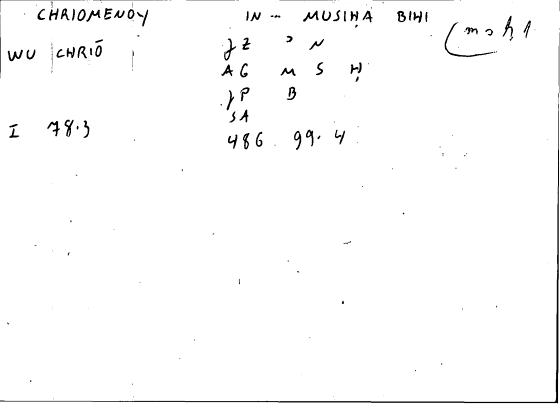 CHRIOMENOY IN - MUSIḤA BIHI
WU CHRIŌ JZ ɔ N
AG M S Ḥ
JP B
SA
I 78.3 486 99.4